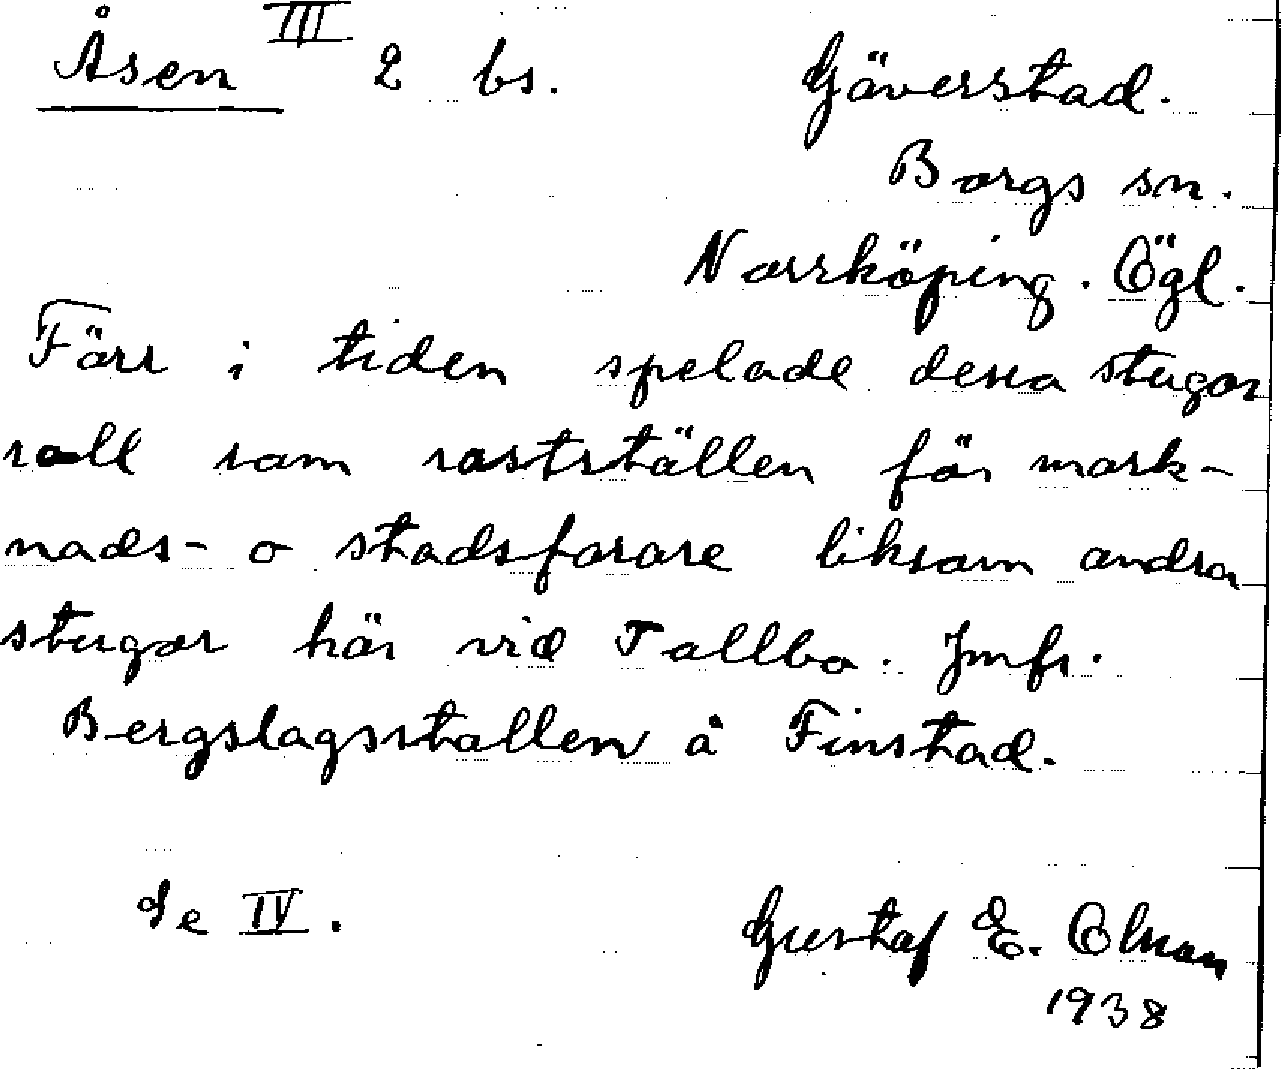 Åsen III 2 bs. Gäverstad.
Borgs sn.
Norrköping. Ögl.
Förr i tiden spelade dessa stugor
roll som rastställen för mark-
nads- o stadsfarare liksom andra
stugor här vid Tallbo. Jmfr.
Bergslagsstallen å Finstad.
Se IV.
Gustaf E. Olsson
1938